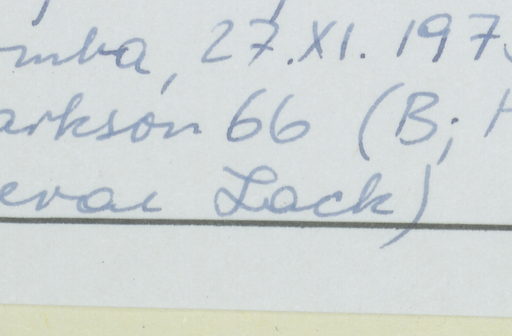 mba, 27.XI. 197
arkson 66 (B; H
evae Lack)